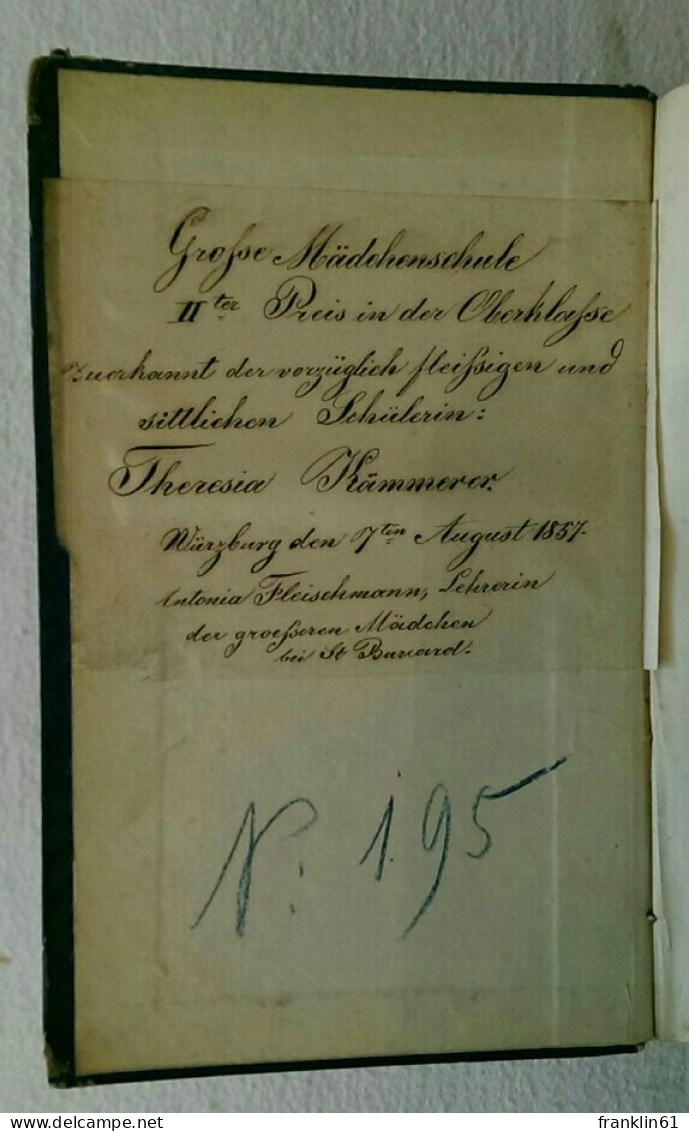 Große Mädchenschule
II ter Preis in der Oberklaße
zuerkannt der vorzüglich fleißigen und
sittlichen Schülerin:
Theresia Kämmerer.
Würzburg den 7ten August 1857.
Antonia Fleischmann, Lehrerin
der groeßeren Mädchen
bei St
N. 195
© franklin61